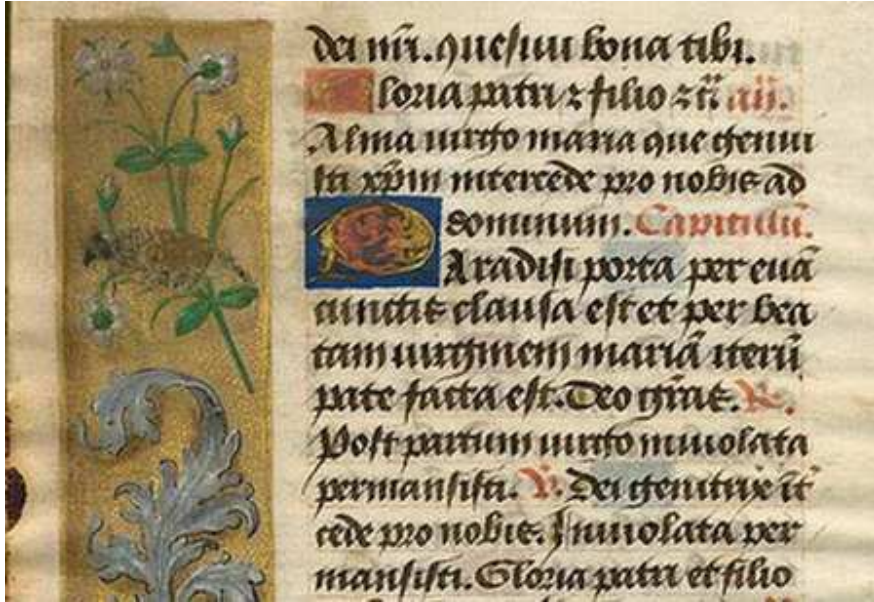 dei nr̄i. quesiui bona tibi.
Gloria patri ⁊ filio ⁊ c̄. añ.
Alma uirgo maria que genui
sti xp̄m intercede pro nobis ad
dominum. Capitulū.
Paradisi porta per euā
cunctis clausa est et per bea
tam uirginem mariā iterū
pate facta est. Deo gr̄as. R.
Post partum uirgo inuiolata
permansisti. V. Dei genitrix īt
cede pro nobis. Inuiolata per
mansisti. Gloria patri et filio